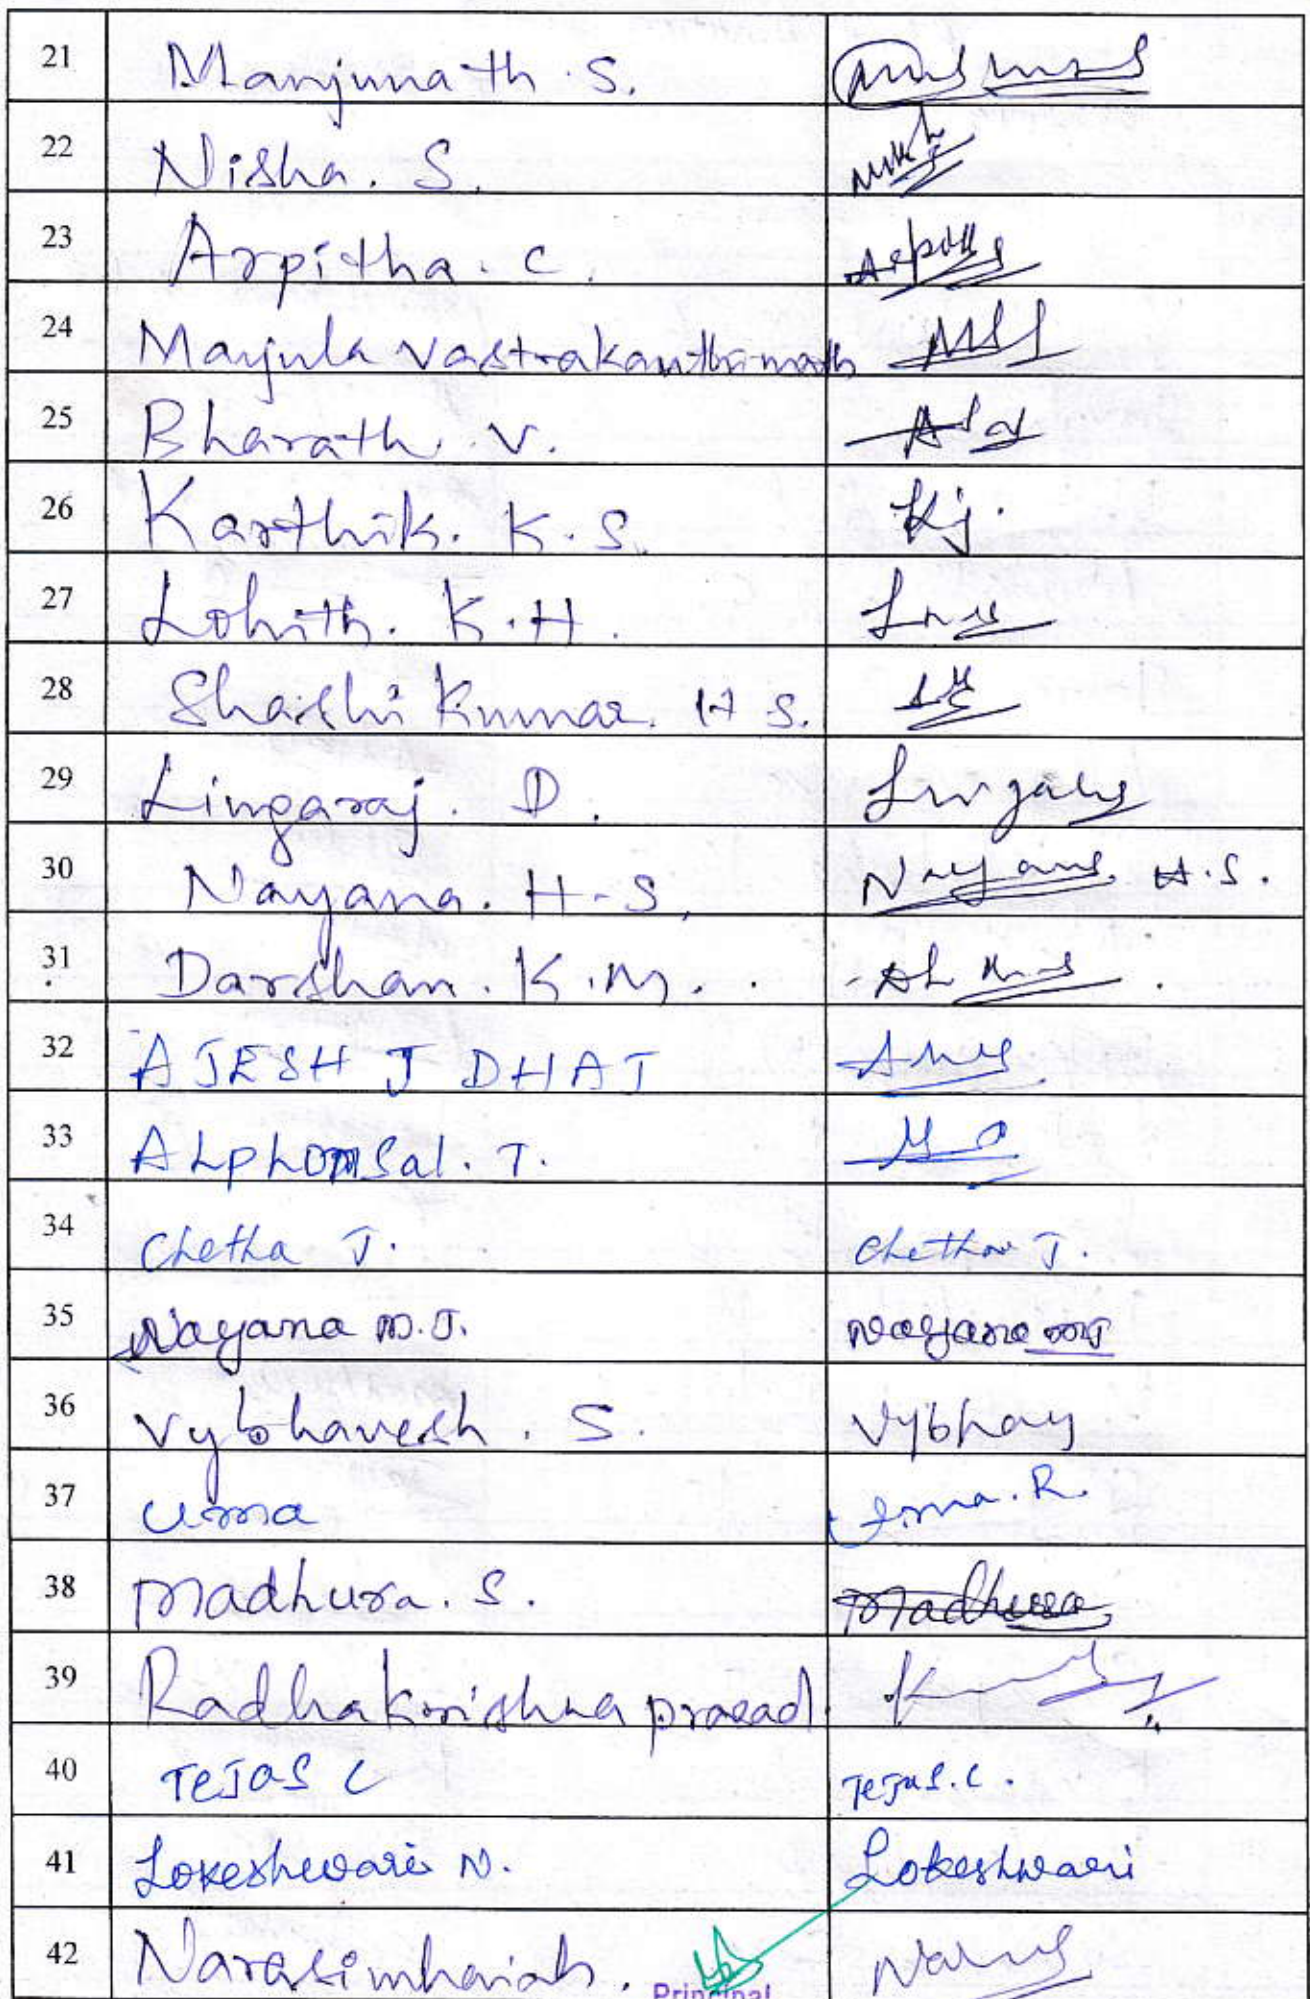 21 Manjunath S.
22 Nisha. S.
23 Arpitha. C.
24 Manjula Vastrakanthimath
25 Bharath. V.
26 Karthik. K. S. Kj.
27 Lohith. K.H.
28 Shashi Kumar. H S.
29 Lingaraj. D.
30 Nayana. H-S, H.S.
31 Darshan. K.M.
32 AJESH J DHAT
33 ALphonsal. T.
34 Chetha J. Chetha J.
35 Nayana M.J. Nayana MJ
36 Vybhavesh. S. Vybhav
37 Uma Uma. R.
38 Madhura. S. Madhura
39 Radhakrishna prasad.
40 TeJas C TeJas. C.
41 Lokeshwari N. Lokeshwari
42 Narasimhaiah.
Principal